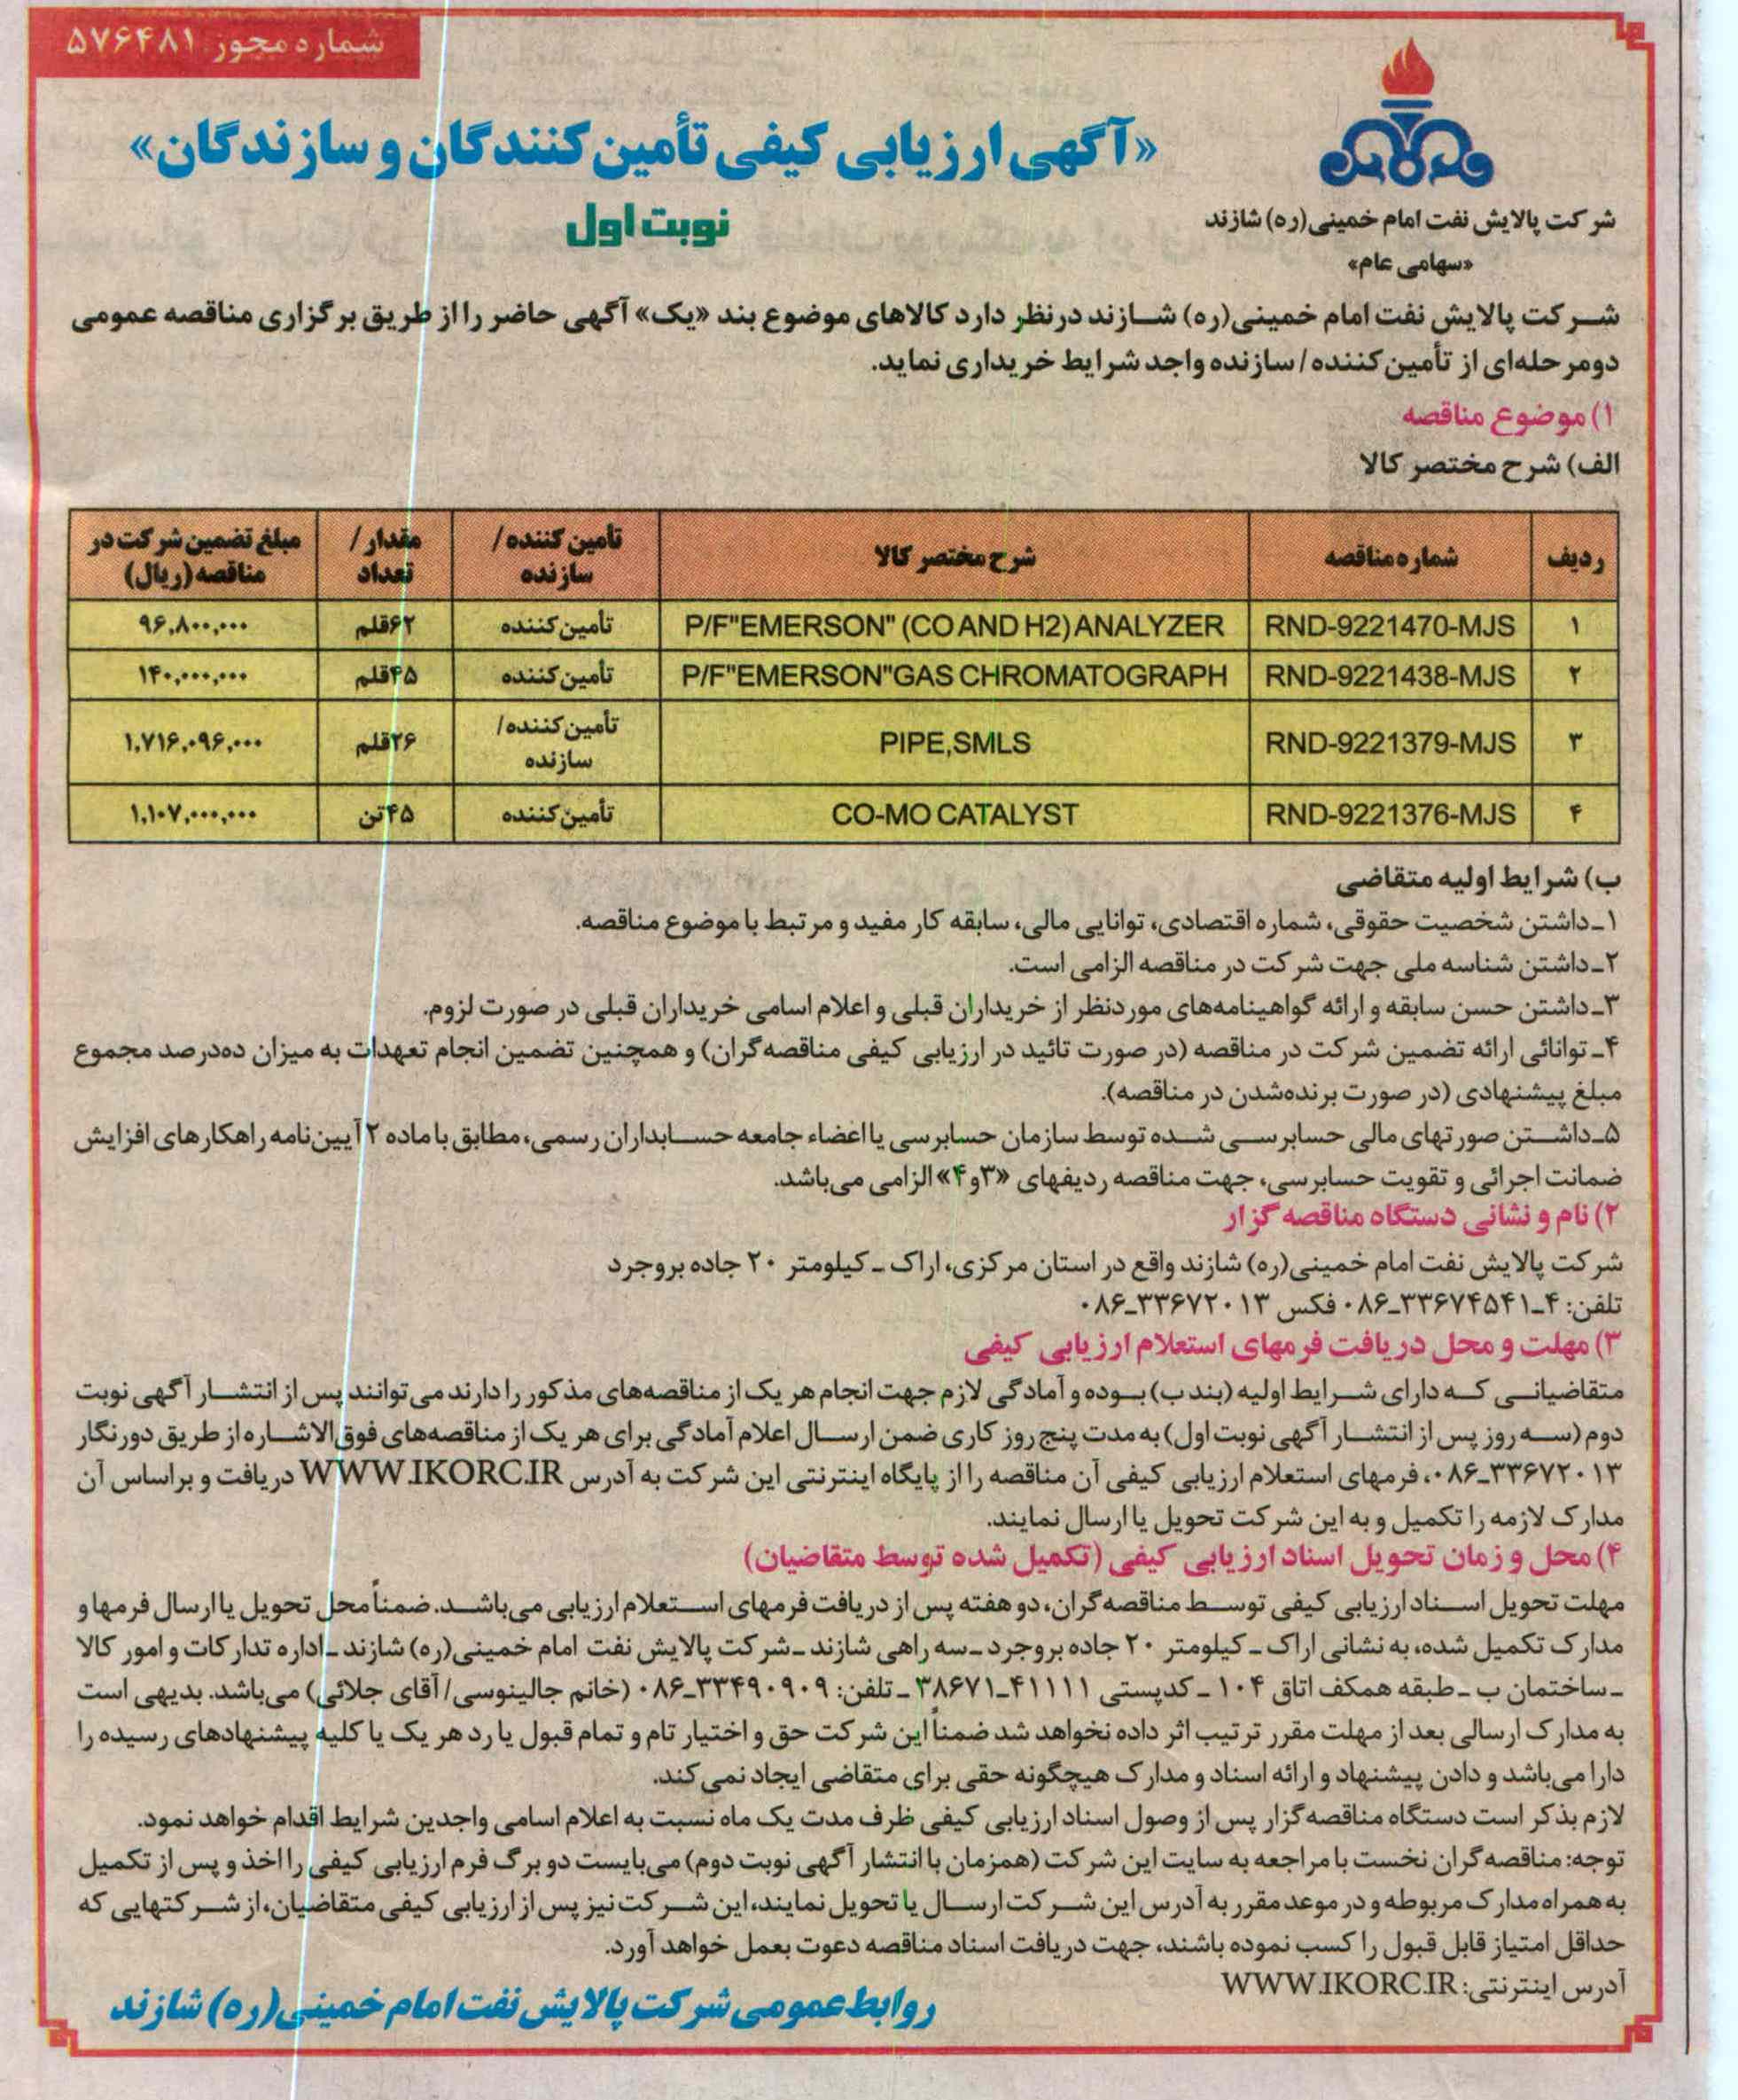 شماره مجوز: ۵۷۶۴۸۱
«آگهی ارزیابی کیفی تأمین‌کنندگان و سازندگان»
نوبت اول
شرکت پالایش نفت امام خمینی(ره) شازند
«سهامی عام»
شرکت پالایش نفت امام خمینی(ره) شازند درنظر دارد کالاهای موضوع بند «یک» آگهی حاضر را از طریق برگزاری مناقصه عمومی
دومرحله‌ای از تأمین‌کننده/سازنده واجد شرایط خریداری نماید.
۱) موضوع مناقصه
الف) شرح مختصر کالا
ردیف | شماره مناقصه | شرح مختصر کالا | تأمین کننده/ سازنده | مقدار/ تعداد | مبلغ تضمین شرکت در مناقصه (ریال)
۱ | RND-9221470-MJS | P/F"EMERSON" (CO AND H2) ANALYZER | تأمین‌کننده | ۶۲قلم | ۹۶,۸۰۰,۰۰۰
۲ | RND-9221438-MJS | P/F"EMERSON"GAS CHROMATOGRAPH | تأمین‌کننده | ۴۵قلم | ۱۴۰,۰۰۰,۰۰۰
۳ | RND-9221379-MJS | PIPE,SMLS | تأمین‌کننده/ سازنده | ۲۶قلم | ۱,۷۱۶,۰۹۶,۰۰۰
۴ | RND-9221376-MJS | CO-MO CATALYST | تأمین‌کننده | ۴۵تن | ۱,۱۰۷,۰۰۰,۰۰۰
ب) شرایط اولیه متقاضی
۱ـ داشتن شخصیت حقوقی، شماره اقتصادی، توانایی مالی، سابقه کار مفید و مرتبط با موضوع مناقصه.
۲ـ داشتن شناسه ملی جهت شرکت در مناقصه الزامی است.
۳ـ داشتن حسن سابقه و ارائه گواهینامه‌های موردنظر از خریداران قبلی و اعلام اسامی خریداران قبلی در صورت لزوم.
۴ـ توانائی ارائه تضمین شرکت در مناقصه (در صورت تائید در ارزیابی کیفی مناقصه‌گران) و همچنین تضمین انجام تعهدات به میزان ده‌درصد مجموع
مبلغ پیشنهادی (در صورت برنده‌شدن در مناقصه).
۵ـ داشتن صورتهای مالی حسابرسی شده توسط سازمان حسابرسی یا اعضاء جامعه حسابداران رسمی، مطابق با ماده ۲ آیین‌نامه راهکارهای افزایش
ضمانت اجرائی و تقویت حسابرسی، جهت مناقصه ردیفهای «۳و۴» الزامی می‌باشد.
۲) نام و نشانی دستگاه مناقصه‌گزار
شرکت پالایش نفت امام خمینی(ره) شازند واقع در استان مرکزی، اراک ـ کیلومتر ۲۰ جاده بروجرد
تلفن: ۴ـ۳۳۶۷۴۵۴۱ـ۰۸۶ فکس ۳۳۶۷۲۰۱۳ـ۰۸۶
۳) مهلت و محل دریافت فرمهای استعلام ارزیابی کیفی
متقاضیانی که دارای شرایط اولیه (بند ب) بوده و آمادگی لازم جهت انجام هر یک از مناقصه‌های مذکور را دارند می‌توانند پس از انتشار آگهی نوبت
دوم (سه روز پس از انتشار آگهی نوبت اول) به مدت پنج روز کاری ضمن ارسال اعلام آمادگی برای هر یک از مناقصه‌های فوق‌الاشاره از طریق دورنگار
۳۳۶۷۲۰۱۳ـ۰۸۶، فرمهای استعلام ارزیابی کیفی آن مناقصه را از پایگاه اینترنتی این شرکت به آدرس WWW.IKORC.IR دریافت و براساس آن
مدارک لازمه را تکمیل و به این شرکت تحویل یا ارسال نمایند.
۴) محل و زمان تحویل اسناد ارزیابی کیفی (تکمیل شده توسط متقاضیان)
مهلت تحویل اسناد ارزیابی کیفی توسط مناقصه‌گران، دو هفته پس از دریافت فرمهای استعلام ارزیابی می‌باشد. ضمناً محل تحویل یا ارسال فرمها و
مدارک تکمیل شده، به نشانی اراک ـ کیلومتر ۲۰ جاده بروجرد ـ سه راهی شازند ـ شرکت پالایش نفت امام خمینی(ره) شازند ـ اداره تدارکات و امور کالا
ـ ساختمان ب ـ طبقه همکف اتاق ۱۰۴ ـ کدپستی ۴۱۱۱۱ـ۳۸۶۷۱ ـ تلفن: ۳۳۴۹۰۹۰۹ـ۰۸۶ (خانم جالینوسی/آقای جلائی) می‌باشد. بدیهی است
به مدارک ارسالی بعد از مهلت مقرر ترتیب اثر داده نخواهد شد ضمناً این شرکت حق و اختیار تام و تمام قبول یا رد هر یک یا کلیه پیشنهادهای رسیده را
دارا می‌باشد و دادن پیشنهاد و ارائه اسناد و مدارک هیچگونه حقی برای متقاضی ایجاد نمی‌کند.
لازم بذکر است دستگاه مناقصه‌گزار پس از وصول اسناد ارزیابی کیفی ظرف مدت یک ماه نسبت به اعلام اسامی واجدین شرایط اقدام خواهد نمود.
توجه: مناقصه‌گران نخست با مراجعه به سایت این شرکت (همزمان با انتشار آگهی نوبت دوم) می‌بایست دو برگ فرم ارزیابی کیفی را اخذ و پس از تکمیل
به همراه مدارک مربوطه و در موعد مقرر به آدرس این شرکت ارسال یا تحویل نمایند، این شرکت نیز پس از ارزیابی کیفی متقاضیان، از شرکتهایی که
حداقل امتیاز قابل قبول را کسب نموده باشند، جهت دریافت اسناد مناقصه دعوت بعمل خواهد آورد.
آدرس اینترنتی: WWW.IKORC.IR
روابط عمومی شرکت پالایش نفت امام خمینی(ره) شازند